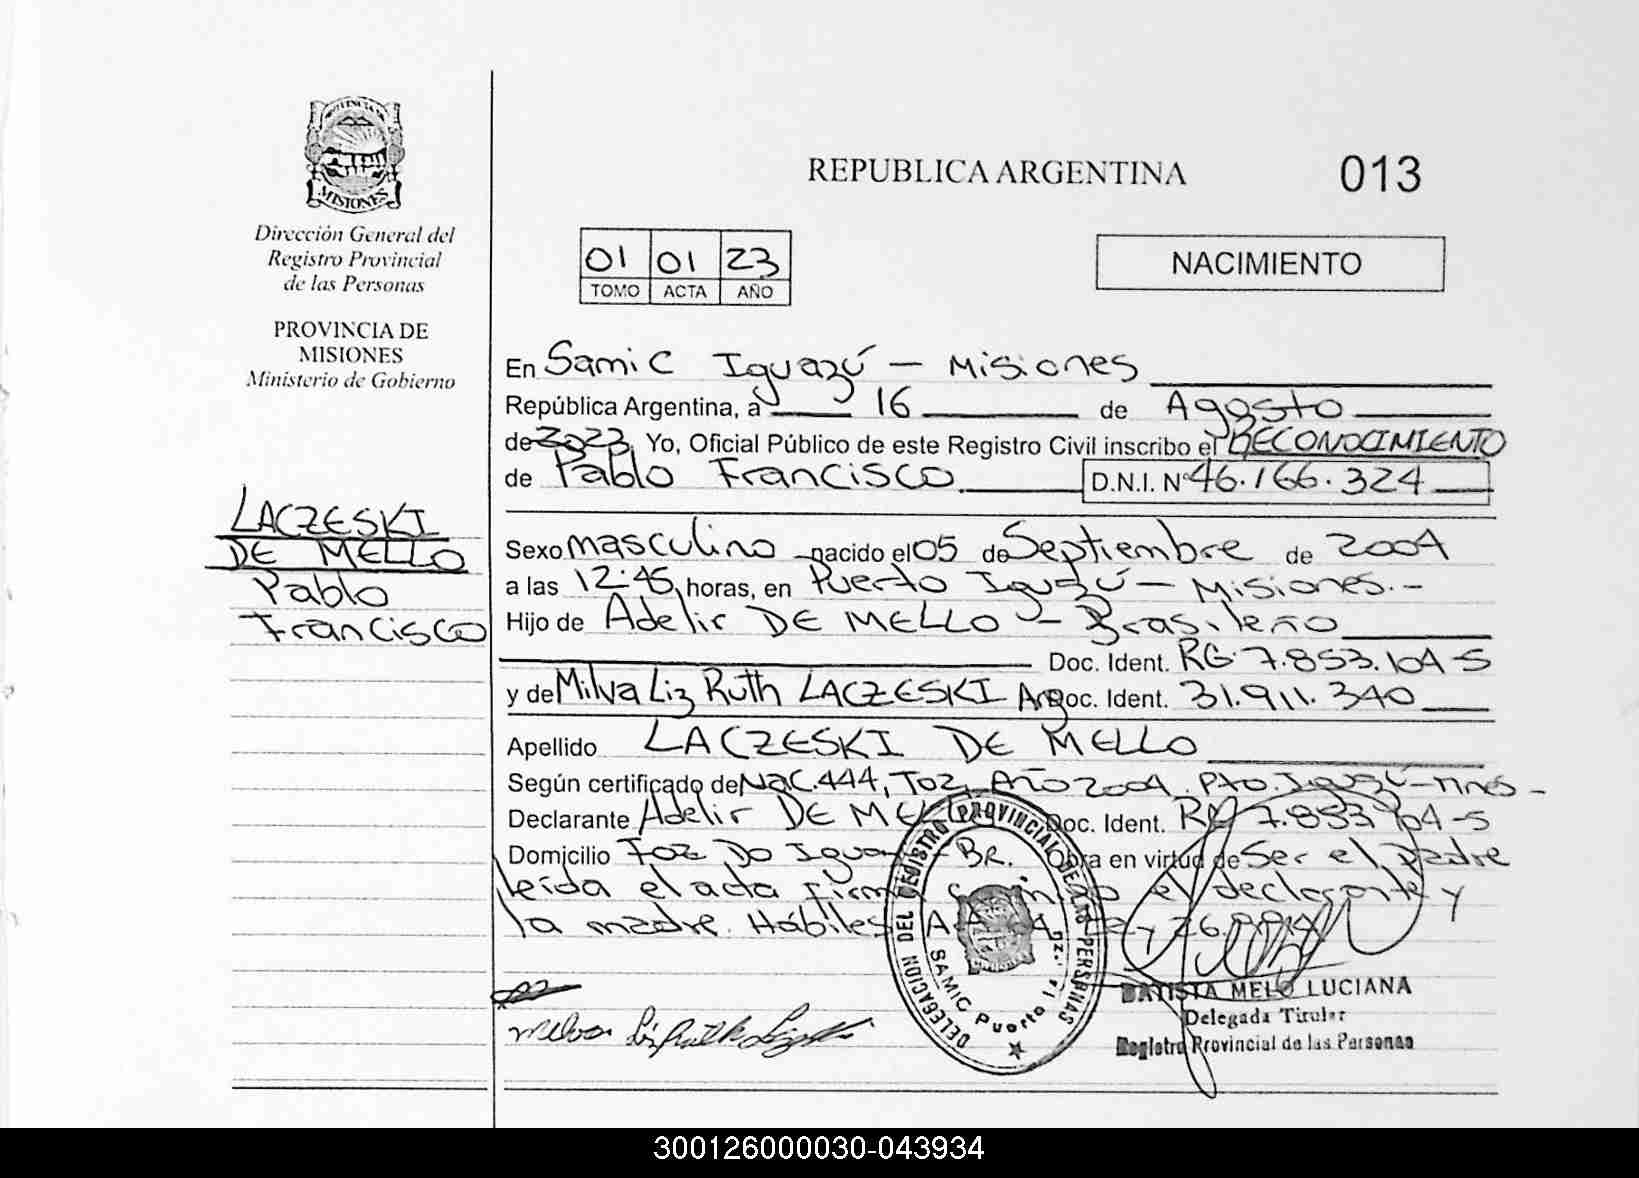 PROVINCIA DE
MISIONES
Dirección General del
Registro Provincial
de las Personas
PROVINCIA DE
MISIONES
Ministerio de Gobierno
LACZESKI
DE MELLO
Pablo
Francisco
REPUBLICA ARGENTINA
013
01 01 23
TOMO ACTA AÑO
NACIMIENTO
En Samic Iguazú - Misiones
República Argentina, a 16 de Agosto
de 2023 Yo, Oficial Público de este Registro Civil inscribo el RECONOCIMIENTO
de Pablo Francisco D.N.I. Nº 46.166.324
Sexo masculino nacido el 05 de Septiembre de 2004
a las 12:45 horas, en Puerto Iguazú - Misiones.-
Hijo de Adelir DE MELLO - Brasileño
Doc. Ident. RG 7.853.104-5
y de Milva Liz Ruth LACZESKI Arg Doc. Ident. 31.911.340
Apellido LACZESKI DE MELLO
Según certificado de Nac. 444, To2, Año 2004. Pto. Iguazú - Mnes -
Declarante Adelir DE MELLO Doc. Ident. RG 7.853.104-5
Domicilio Foz Do Iguazú - BR. Obra en virtud de Ser el padre
leída el acta firma el declarante y
la madre. Hábiles Ley 26.994
DELEGACION DEL REGISTRO PROVINCIAL DE LAS PERSONAS
SAMIC Puerto
BATISTA MELO LUCIANA
Delegada Titular
Registro Provincial de las Personas
300126000030-043934